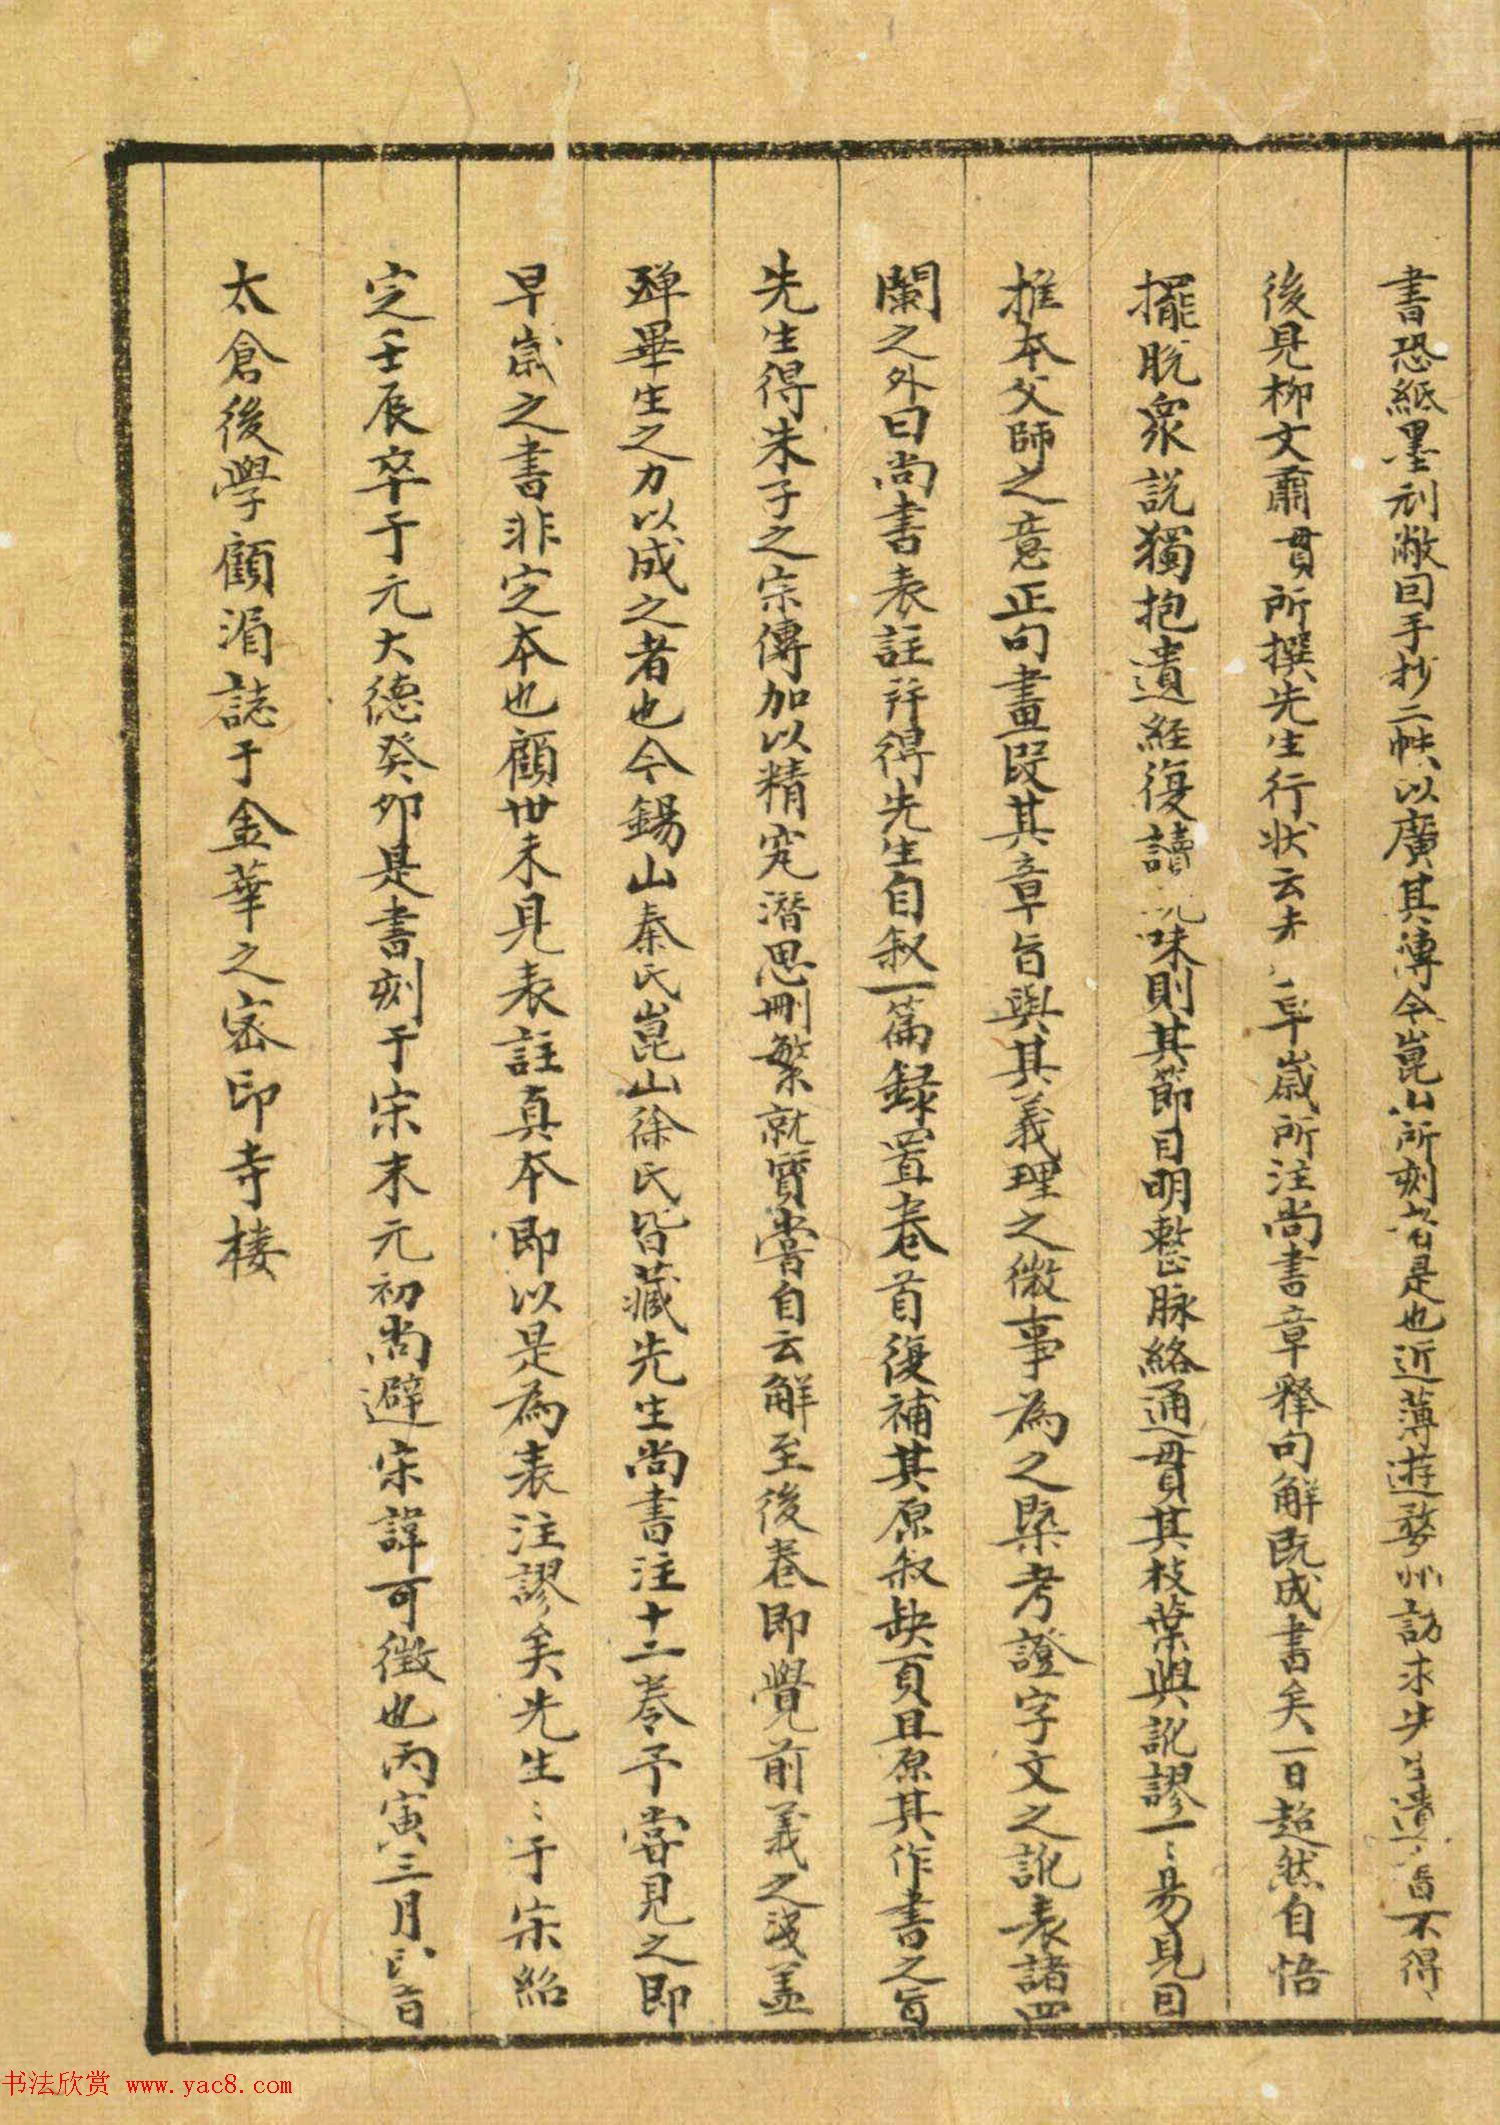 書恐紙墨刓敝回手抄二帙以廣其傳今崑山所刻者是也近薄遊婺州訪求先生遺書不得
後見柳文肅貫所撰先生行狀云先早歲所注尚書章釋句解既成書矣一日超然自悟
擺脫衆說獨抱遺經復讀玩味則其節目明整脉絡通貫其枝葉與訛謬一〻易見因
推本父師之意正句畫段其章旨與其義理之微事為之槩考證字文之訛表諸四
闌之外曰尚書表註并得先生自叙一篇録置卷首復補其原叙缺頁且原其作書之旨
先生得朱子之宗傳加以精究潛思刪繁就實嘗自云解至後卷即覺前義之淺蓋
殫畢生之力以成之者也今錫山秦氏崑山徐氏皆藏先生尚書注十二卷予嘗見之即
早歲之書非定本也顧世未見表註真本即以是為表注謬矣先生〻于宋紹
定壬辰卒于元大德癸卯是書刻于宋末元初尚避宋諱可徵也丙寅三月
太倉後學顧湄誌于金華之密印寺樓
书法欣赏 www.yac8.com